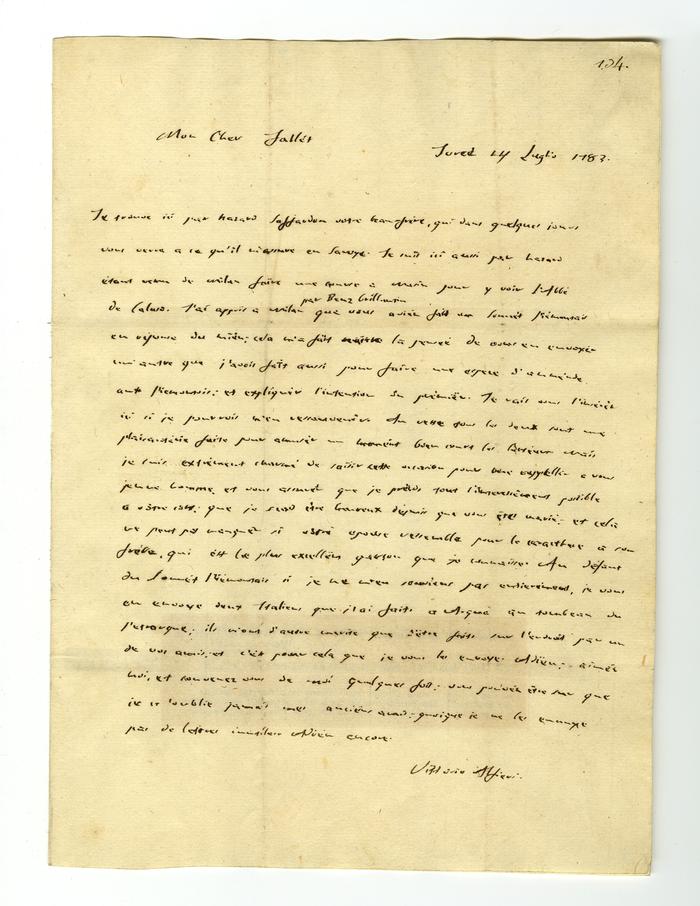 134.
Mon Cher Fallet
Turin 24 Luglio 1783.
Je trouve ici par hazard votre beaufrère, qui dans quelques jours
vous verra a ce qu'il m'assure en Je suis ici aussi par hazard
étant venu de milan faire une course a pour y voir l'Abbé
de Caluso. J'ai appris a milan que vous aviez fait un Sonnet Piémontais
par Benz
en reponse du mien; cela m'a fait la pensée de vous en envoyer
un autre que j'avois fait aussi pour faire une espece d'amende
aux Piémontois; et expliquer l'intention du prémier. Je vais vous l'
ici si je pourrois m'en ressouvenir. Au reste tous les deux sont une
plaisanterie faite pour amuser un moment bien court les mais
je suis extrêmement charmé de saisir cette occasion pour me a vous
homme, et vous assurer que je prends tout l' possible
a vôtre que je scai être heureux depuis que vous êtes marié; et cela
ne peut pas manquer si vôtre epouse ressemble pour le caractere a son
frère, qui est le plus excellent garçon que je connaisse. Au défaut
du Sonnet Piémontais si je ne m'en souviens pas entierement, je vous
en envoye deux Italiens que j'ai faits a Arquà au tombeau du
Petrarque; ils n'ont d'autre merite que d'être faits sur l'endroit par un
de vos amis; et c'est pour cela que je vous les envoye. Adieu; aimés
moi, et souvenez vous de moi quelques fois; vous pouvés être sur que
je n'oublie jamais mes anciens amis; quoique je ne les ennuye
pas de lettres inutiles. Adieu encore.
Vittorio Alfieri.